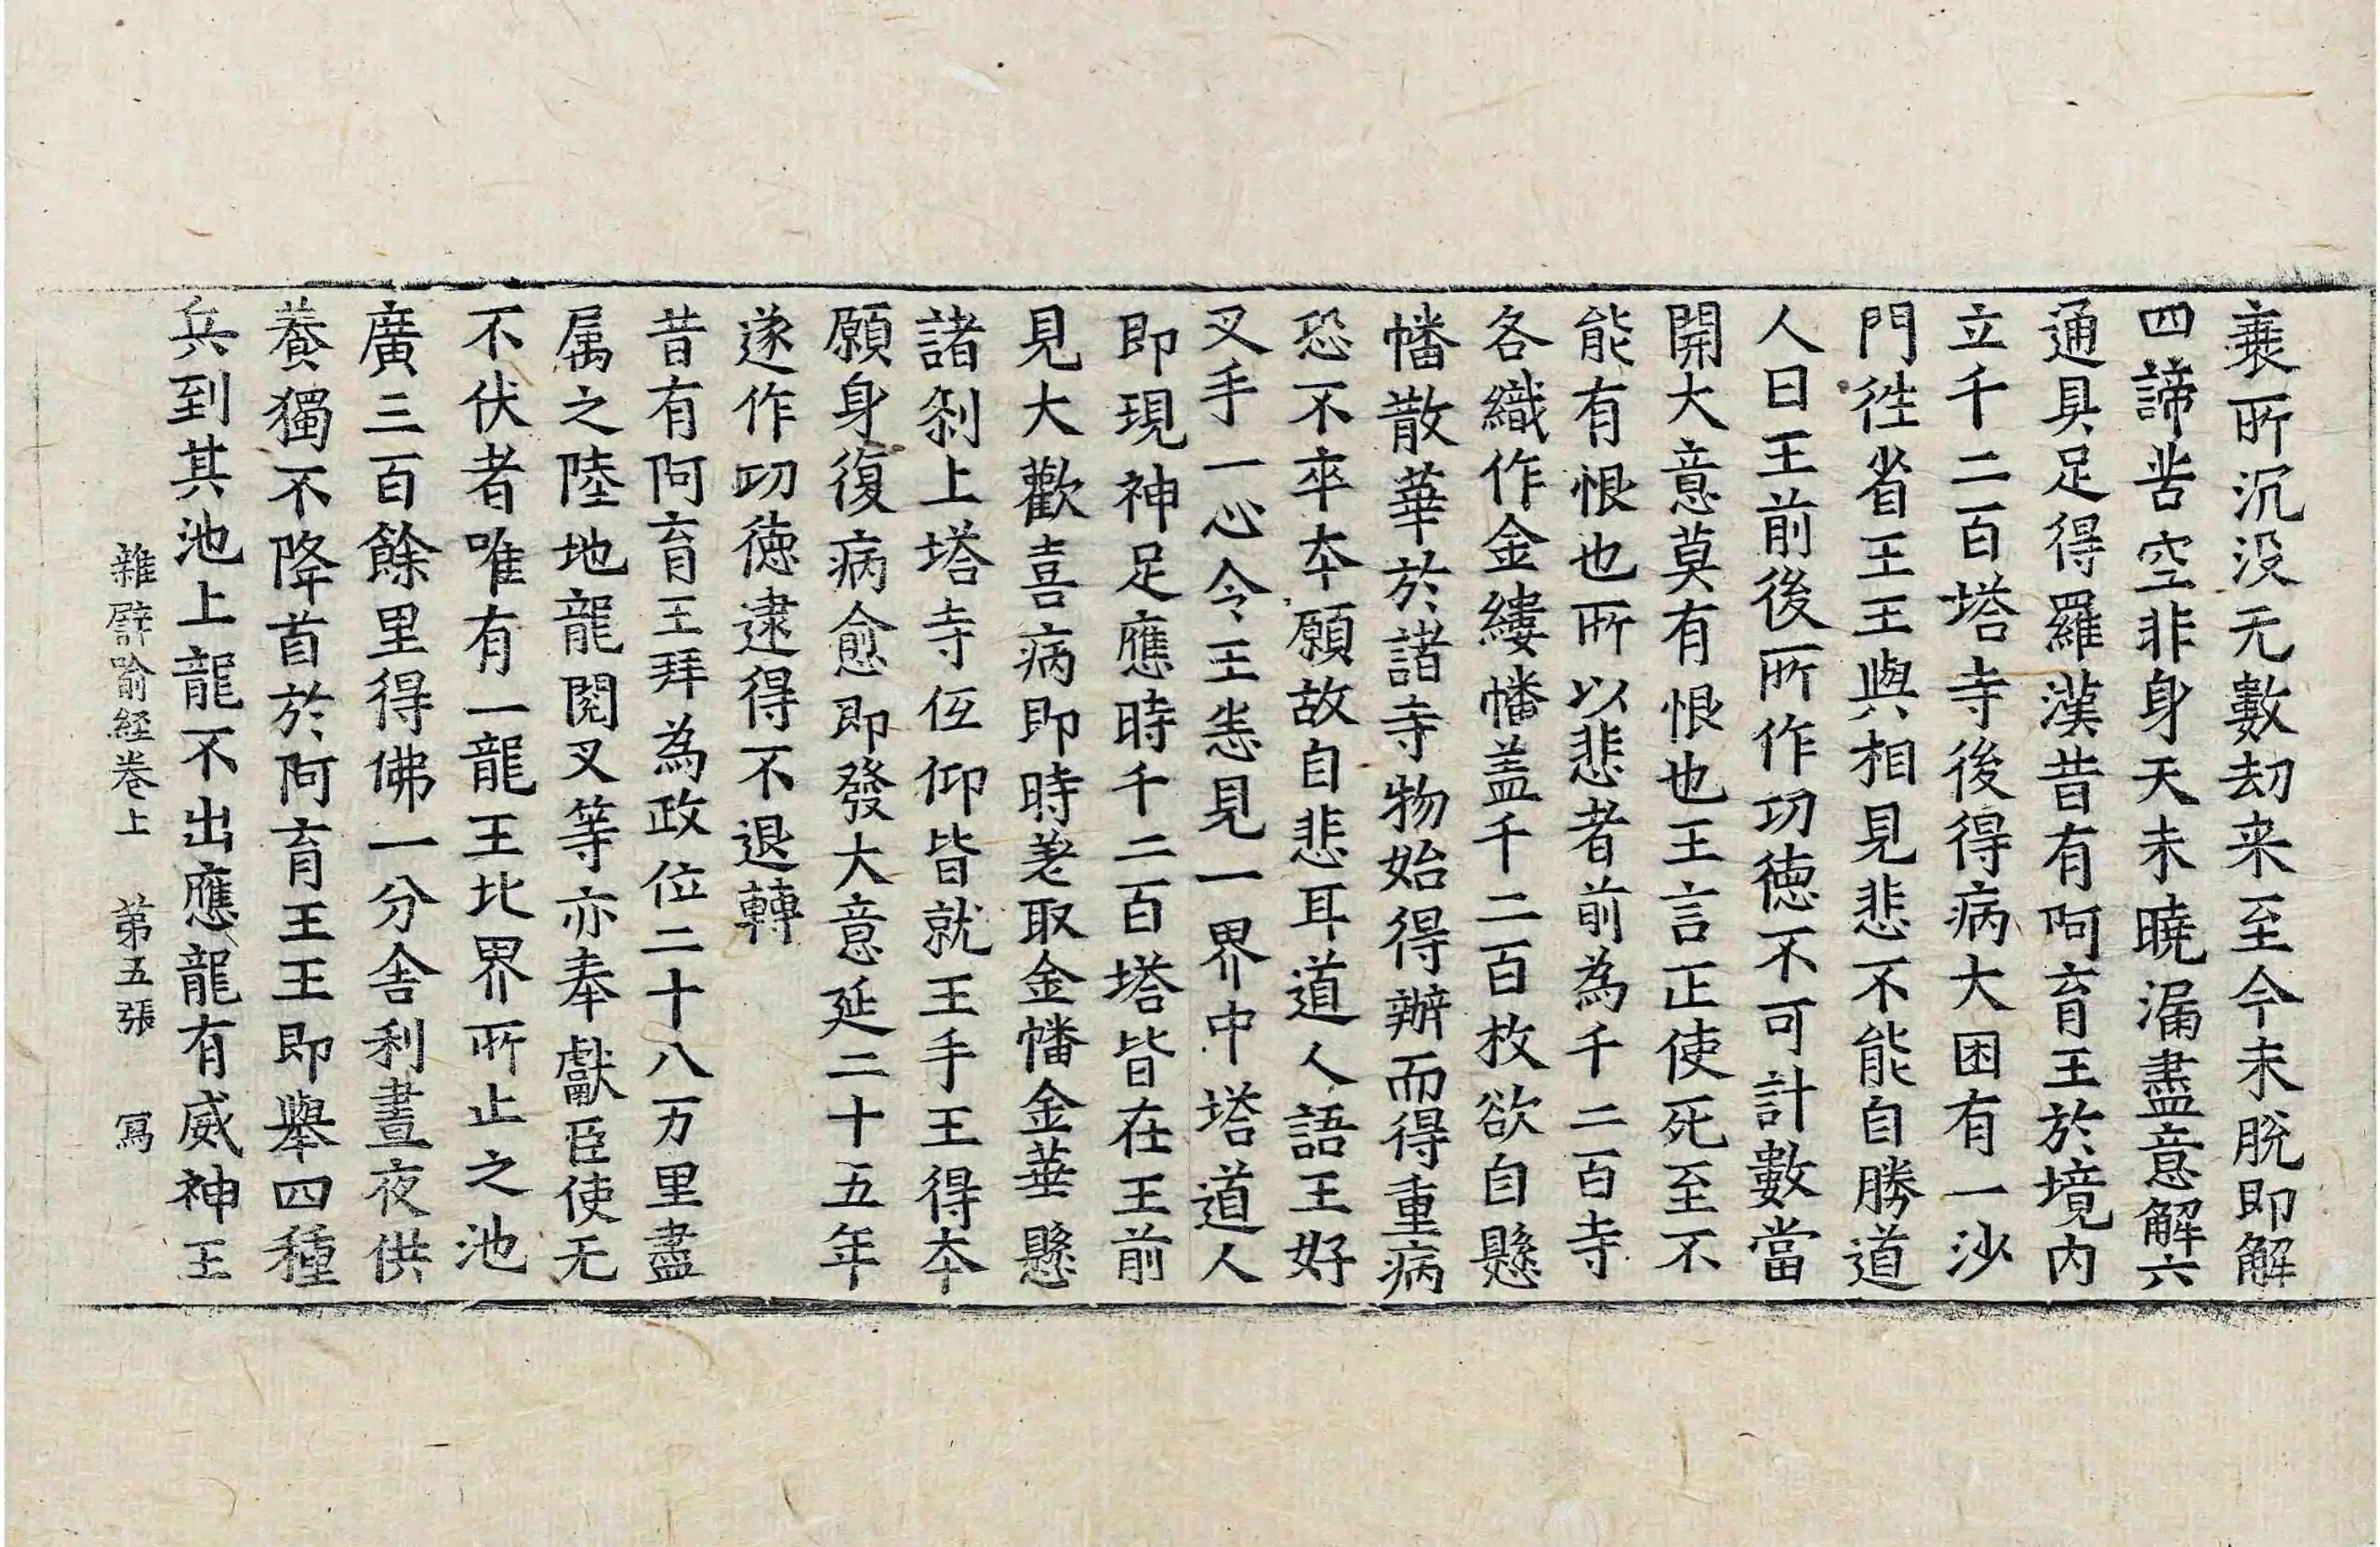 蘘所沉没无數劫来至今未脫即解
四諦苦空非身天未曉漏盡意解六
通具足得羅漢昔有阿育王於境内
立千二百塔寺後得病大困有一沙
門徃省王王與相見悲不能自勝道
人曰王前後所作㓛德不可計數當
開大意莫有恨也王言正使死至不
能有恨也所以悲者前為千二百寺
各織作金縷幡盖千二百枚欲自懸
幡散華於諸寺物始得辦而得重病
恐不卒夲願故自悲耳道人語王好
叉手一心令王恙見一界中塔道人
即現神足應時千二百塔皆在王前
見大歡喜病即時差取金幡金華懸
諸剎上塔寺仾仰皆就王手王得夲
願身復病愈即發大意延二十五年
遂作㓛德逮得不退轉
昔有阿育王拜為政位二十八万里盡
属之陸地龍閱叉等亦奉獻臣使无
不伏者唯有一龍王北界所止之池
廣三百餘里得佛一分舍利晝夜供
養獨不降首於阿育王王即舉四種
兵到其池上龍不出應龍有威神王
雜譬喻経卷上　第五張　寫